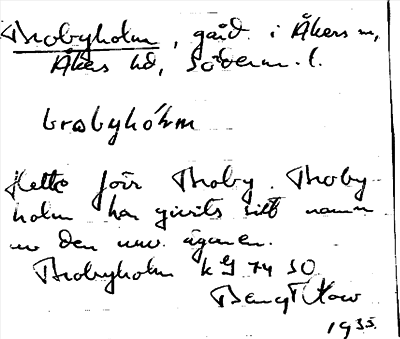 Brobyholm, gård i Åkers sn,
Åkers hd, Söderm. l.
brobyhólm
Hette förr Broby. Broby-
holm har givits sitt namn
av den nuv. ägaren.
Brobyholm k G 74 SO
Bengt
1935.